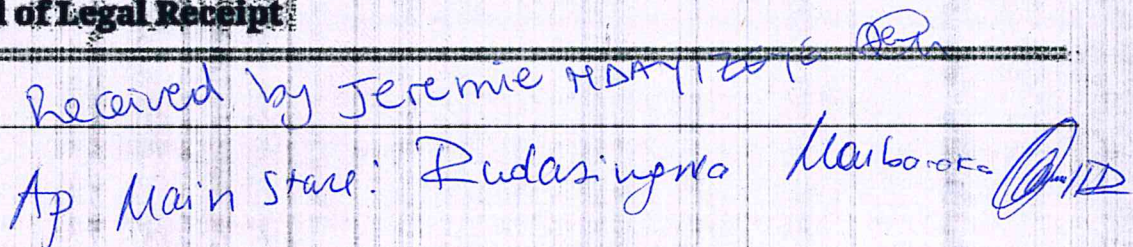 l of Legal Receipt
Received by Jeremie NDAYIZEYE
Ap Main Store: Rudasingwa